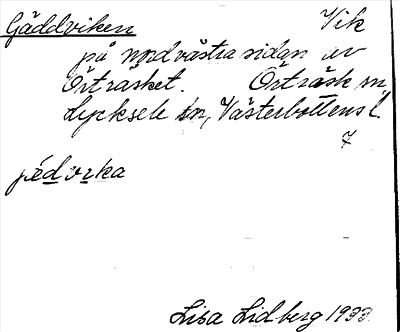 Gäddviken Vik
på nordvästra sidan av
Örträsket. Örträsk sn,
Lycksele tn, Västerbottens l.
7
Lisa Lidberg 1933.